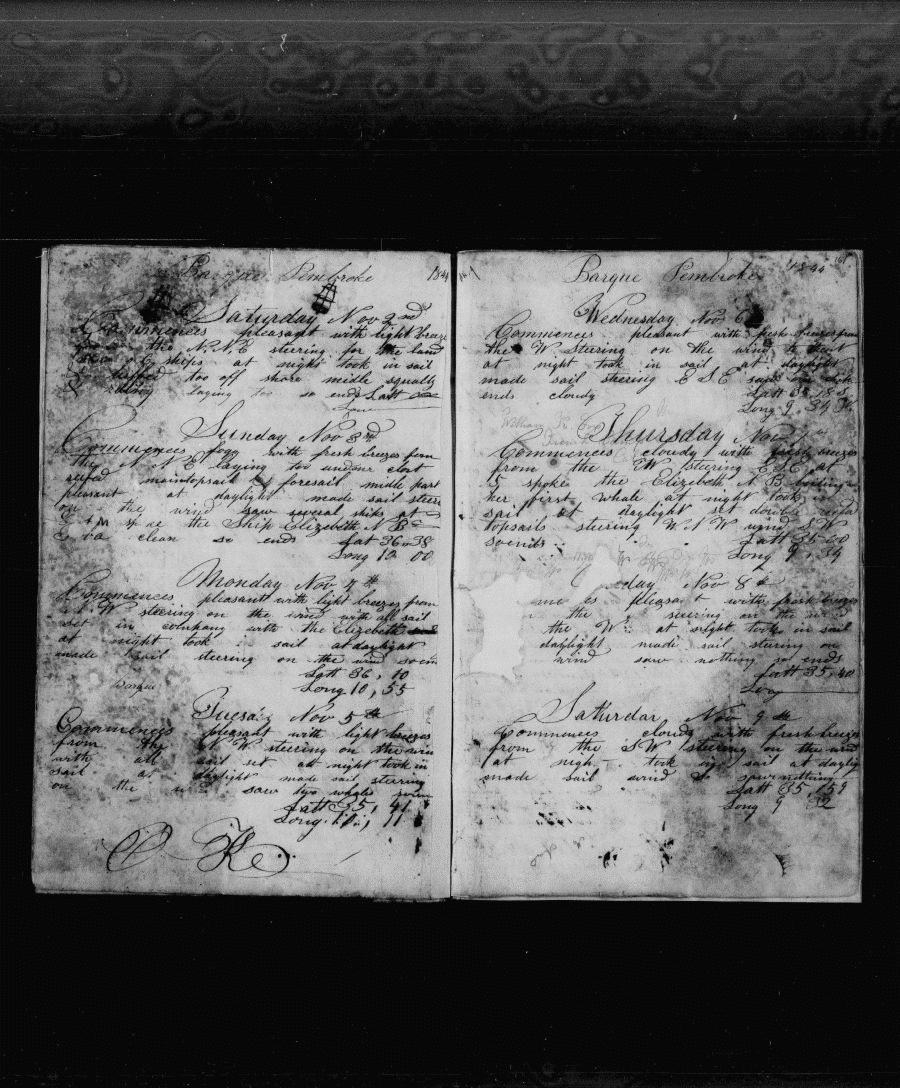 Barque Pembroke 1844
Saturday Nov 2nd
Commences pleasant with light breeze
from the N.N.E steering for the land
ships at night took in sail
too off shore midle squally
laying too so ends Latt
Long
Sunday Nov 3rd
Commences fogy with fresh breezes from
the N.N.E laying too under clost
reefed maintopsail & foresail midle part
plesant at daylight made sail steer
on the wind saw several ships at
the Ship Elizebeth N B
clean so ends Latt 36=38
Long 12 00
Monday Nov 4th
Commences pleasant with light breezes from
N.W steering on the wind with all sail
set in company with the Elizebeth
at night took sail at daylight
made sail steering on the wind so ends
Latt 36, 10
Barque Long 10, 55
Tuesday Nov 5th
Commences pleasant with light breezes
from the N W steering on the win
with all sail set at night took in
sail at daylight made sail steering
on the wind saw two whales
Latt 35, 41
Long. 10, 11
Barque Pembroke 1844
Wednesday Nov 6
Commences pleasant with fresh breezes from
the W. Steering on the wind
at night took in sail at daylight
made sail steering E S E
ends cloudy Latt 35
Long 9, 34
William H.
Thursday Nov 7
Commences cloudy with fresh breezes
from the W steering E.S.E at
5 spoke the Elizebeth N B boiling
her first whale at night took in
sail at daylight set double reefd
topsails steering W.N.W wind S.W
so ends Latt 35-00
Long 9, 34
day Nov 8th
es pleasant with fresh breezes
steering on the wind
the W at night took in sail
daylight made sail steering on
wind saw nothing so ends
Latt 35, 40
Long
Saturday Nov 9th
Commences cloudy with fresh breezes
from the SW steering on the wind
at night took in sail at daylig
made sail wind saw nothing
Latt 35, 59
Long 9 32